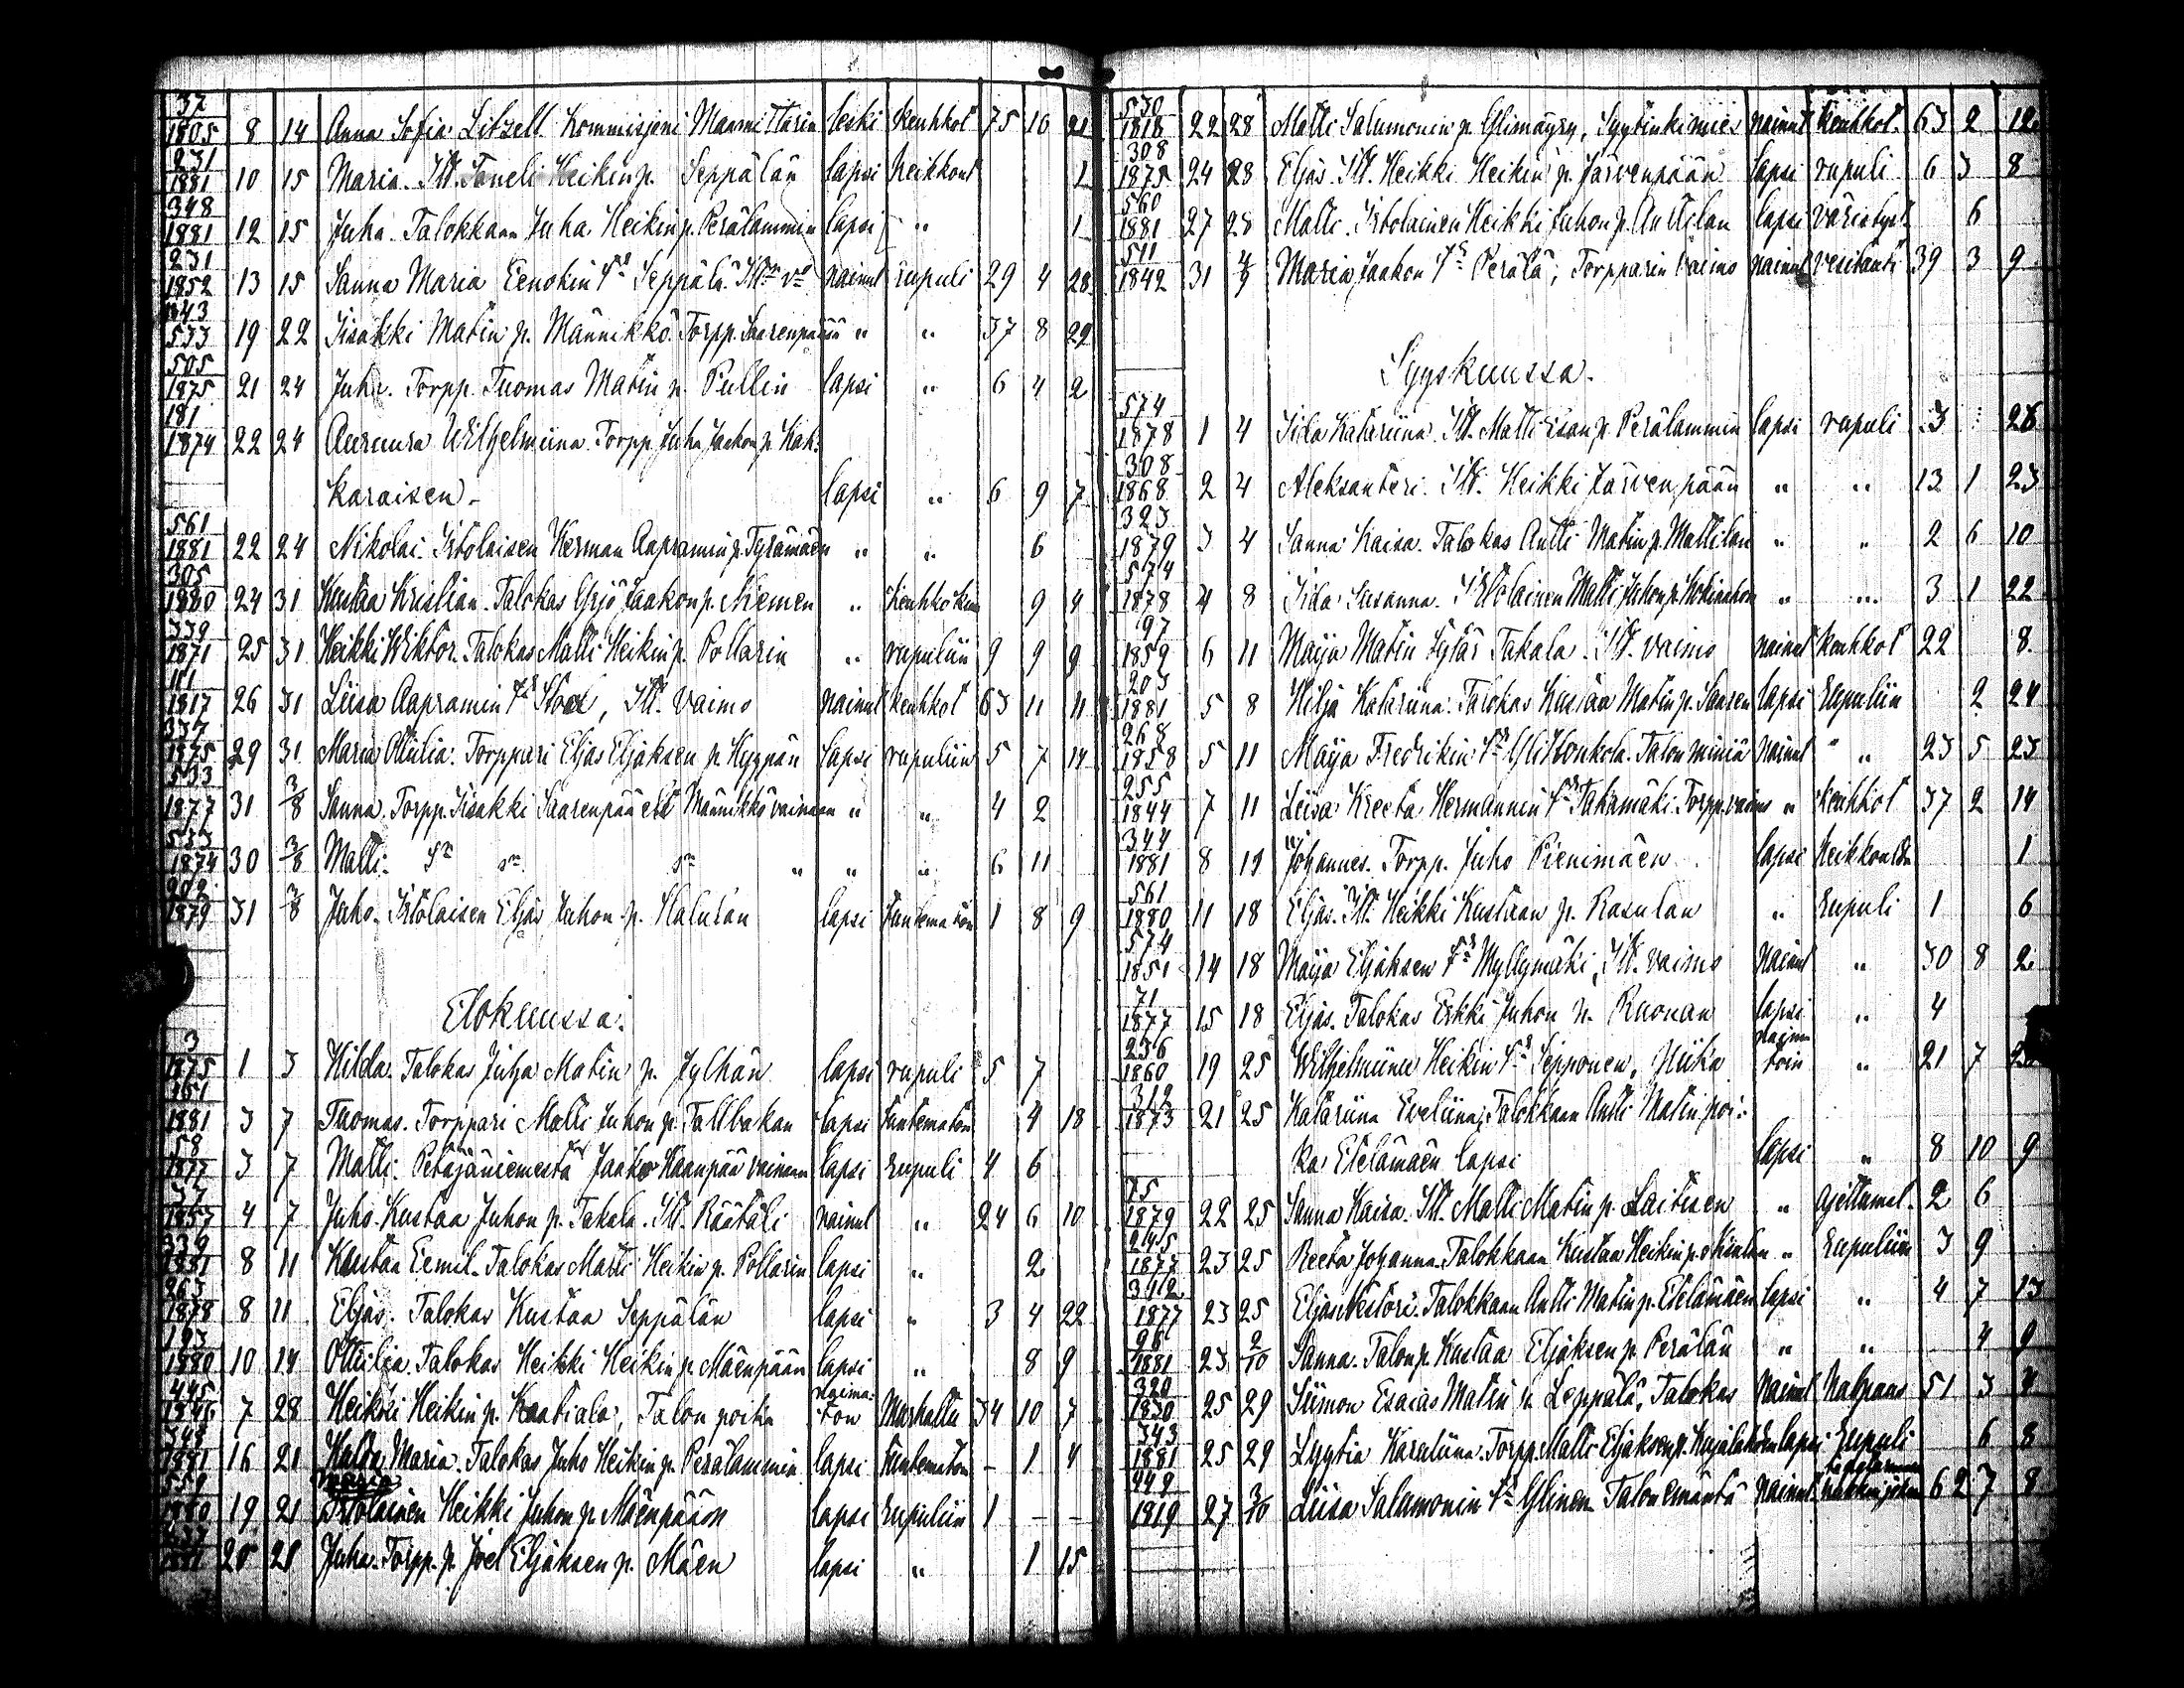 37
1805 8 14 Anna Sofia Litzell Kommisjoni Maamittarin leski keuhkot 75 10 21
231
1881 10 15 Maria. Itl. Taneli Heikin p. Seppälän lapsi heikkous 1
348
1881 12 15 Juha. Talokkaan Juha Heikin p. Perälammin lapsi " 1
231
1852 13 15 Sanna Maria Eenokin Seppälä Itl. nainut rupuli 29 4 28
1843
533 19 22 Iisakki Matin p. Männikkö. Torpp. Saarenpään " " 37 8 29
505
1875 21 24 Juha. Torpp. Tuomas Matin p. Pullin lapsi " 6 4 2
181
1874 22 24 Auruura Wilhelmiina Torpp. Juha Jaakon p. Kak-
karaisen. lapsi " 6 9 7
561
1881 22 24 Nikolai. Itsolaisen Herman Aapramin p. Tyrämäen " " 6
305
1880 24 31 Kustaa Kristian. Talokas Yrjö Jaakon p. Niemen " 9 4
339
1871 25 31 Heikki Wiktor. Talokas Matti Heikin p. Pollarin " rupuliin 9 9 9
1817 26 31 Liisa Aapramin Itl. vaimo nainut keuhkot 63 11 11
337
1875 29 31 Maria Otiulia. Torppari Eljas Eljaksen p. Hyypän lapsi rupuliin 5 7 14
533
1877 31 3/8 Sanna. Torpp. Iisakki Saarenpää eli Männikkö vainaan " " 4 2
533
1874 30 3/8 Matti. " " " 6 11
202
1879 31 3/8 Juho. Itsolaisen Eljas Juhon p. lapsi tuntematon 1 8 9
Elokuussa.
3
1875 1 3 Hilda. Talokas Juha Matin p. Jylhän lapsi rupuli 5 7
1881 3 7 Tuomas. Torppari Matti Juhon p. Tallbakan lapsi tuntematon 4 18
58
1877 3 7 Matti. Petäjäniemestä Jaakko Haanpää vainaan lapsi rupuli 4 6
37
1857 4 7 Juho Kustaa Juhon p. Takala. Itl. Räätäli nainut " 24 6 10
339
1881 8 11 Kustaa Eemil. Talokas Matti Heikin p. Pollarin lapsi " 2
263
1878 8 11 Eljas. Talokas Kustaa Seppälän lapsi " 3 4 22
193
1880 10 14 Ottiilia. Talokas Heikki Heikin p. Mäenpään lapsi " 8 9
445 naima-
1846 7 28 Heikki Heikin p. Kaatiala, Talon poika ton 34 10 7
348
1881 16 21 Maria. Talokas Juho Heikin p. Perälammin lapsi tuntematon - 1 4
559 Maria
1880 19 21 Itsolainen Heikki Juhon p. Mäenpään lapsi rupuliin 1 - -
20 21 Juha. Torpp. p. Joel Eljaksen p. Mäen lapsi " 1 15
530
1818 22 28 Matti Salumonin p. Ylimäyry, Syytinkimies nainut keuhkot. 63 2 12
308
1875 24 28 Eljas. Itl. Heikki Heikin p. Järvenpään lapsi rupuli 6 3 8
560
1881 27 28 Matti. Itsolainen Heikki Juhon p. Anttilan lapsi 6
511
1842 31 4/9 Maria Jaakon Perälä, Torpparin vaimo nainut vesitauti 39 3 9
Syyskuussa.
574
1878 1 4 Iida Katariina. Itl. Matti Esan p. Perälammin lapsi rupuli 3 26
308
1868 2 4 Aleksanteri. Itl. Heikki Järvenpään " " 13 1 23
323
1879 3 4 Sanna Kaisa. Talokas Antti Matin p. Mattilan " " 2 6 10
574
1878 4 8 Iida Susanna. Itsolainen Matti Juhon p. " " 3 1 22
97
1859 6 11 Maija Matin tytär Takala. Itl. vaimo nainut keuhkot 22 8
203
1881 5 8 Hilja Katariina. Talokas Kustaa Matin p. Saaren lapsi rupuliin 2 24
268
1858 5 11 Maija Fredrikin Ylitonkola. Talon miniä nainut " 23 5 23
255
1844 7 11 Leisa Kreeta Hermannin Takamäki. Torpp. vaimo " keuhkot 37 2 14
344
1881 8 19 Johannes. Torpp. Juho Pienimäen lapsi 1
561
1880 11 18 Eljas. Itl. Heikki Kustaan p. Rasulan " rupuli 1 6
574
1851 14 18 Maija Eljaksen Myllymäki, Itl. vaimo nainut " 30 8 2
71
1877 15 18 Eljas. Talokas Erkki Juhon p. Ruonan lapsi " 4
236 naima
1860 19 25 Wilhelmiina Heikin Sepponen, toin " 21 7
312
1873 21 25 Katariina Eveliina, Talokkaan Antti Matin poi-
ka Etelämäen lapsi lapsi " 8 10 9
75
1879 22 25 Sanna Kaisa. Itl. Matti Matin p. Laitisen " Ajettumat. 2 6
245
1877 23 25 Reeta Johanna. Talokkaan Kustaa Heikin p. " rupuliin 3 9
312
1877 23 25 Eljas Nestori. Talokkaan Antti Matin p. Etelämäen lapsi " 4 7 13
96
1881 23 2/10 Sanna. Talon p. Kustaa Eljaksen p. Perälän " " 4 9
320
1830 25 29 Siimon Esaias Matin p. Leppälä, Talokas nainut Halpaus 51 3 4
343
1881 25 29 Lyytia Karoliina. Torpp. Matti Eljaksen p. lapsi rupuli 6 8
449
1819 27 3/10 Liisa Salamonin Ylinen Talon emäntä nainut 62 7 8